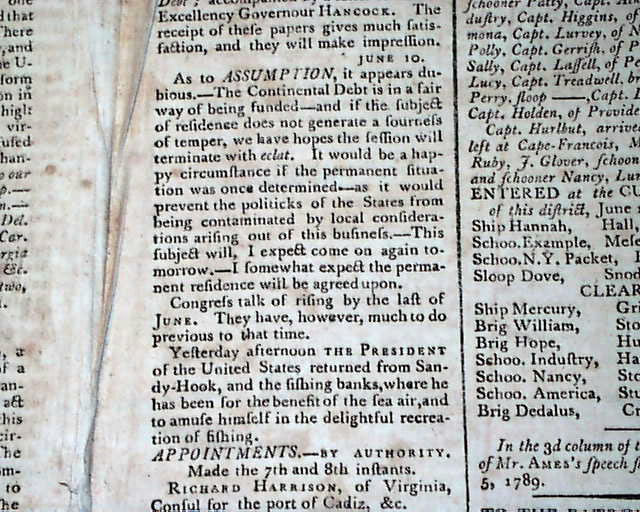 one
d that
There
y, and
he U-
form
on in
high
vir-
han-
our
n.—
Del.
Car.
&c.
two,
Excellency Governour HANCOCK. The
receipt of theſe papers gives much ſatiſ-
faction, and they will make impreſſion.
JUNE 10.
As to ASSUMPTION, it appears du-
bious.—The Continental Debt is in a fair
way of being funded—and if the ſubject
of reſidence does not generate a ſourneſs
of temper, we have hopes the ſeſſion will
terminate with eclat. It would be a hap-
py circumſtance if the permanent ſitua-
tion was once determined—as it would
prevent the politicks of the States from
being contaminated by local conſidera-
tions ariſing out of this buſineſs.—This
ſubject will, I expect come on again to-
morrow.—I ſomewhat expect the perma-
nent reſidence will be agreed upon.
Congreſs talk of riſing by the laſt of
JUNE. They have, however, much to do
previous to that time.
Yeſterday afternoon THE PRESIDENT
of the United States returned from San-
dy-Hook, and the fiſhing banks, where he
has been for the benefit of the ſea air, and
to amuſe himſelf in the delightful recrea-
tion of fiſhing.
APPOINTMENTS.—BY AUTHORITY.
Made the 7th and 8th inſtants.
RICHARD HARRISON, of Virginia,
Conſul for the port of Cadiz, &c.
ſchooner Patty, Capt.
duſtry, Capt. Higgins,
mona, Capt. Lurvey, of
Polly, Capt. Gerriſh, of
Sally, Capt. Laſſell, of
Lucy, Capt. Treadwell,
Perry, ſloop ——, Capt.
Capt. Holden, of Provide
Capt. Hurlbut, arrive
left at Cape-Francois,
Ruby, J. Glover, ſchoon
and ſchooner Nancy,
ENTERED at the CU
of this diſtrict, June
Ship Hannah, Hall,
Schoo. Example,
Schoo. N.Y. Packet,
Sloop Dove,
CLEAR
Ship Mercury,
Brig William,
Brig Hope,
Schoo. Induſtry,
Schoo. Nancy,
Schoo. America,
Brig Dedalus,
In the 3d column of
of Mr. AMES's ſpeech
5, 1789.